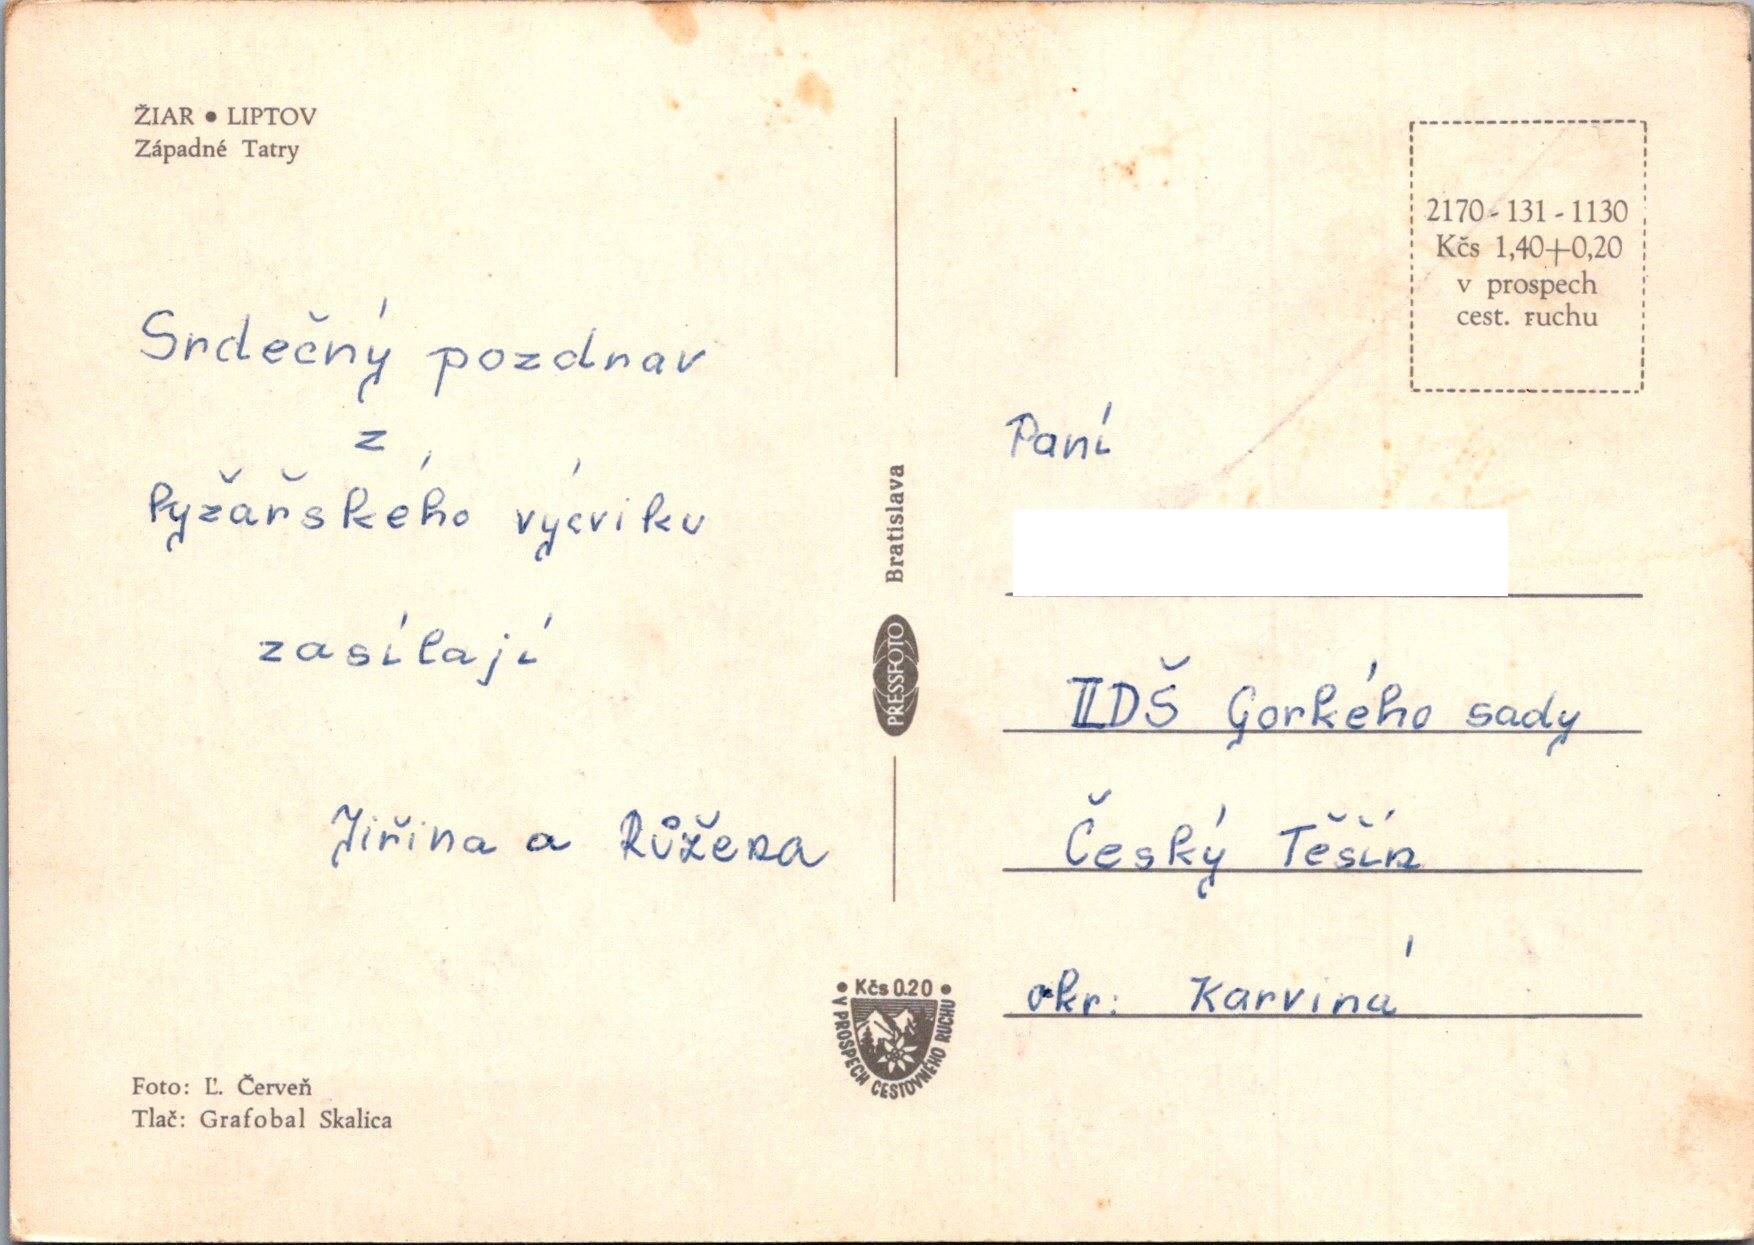 ŽIAR • LIPTOV
Západné Tatry
Srdečný pozdrav
z
lyžařského výcviku
zasílají
Jiřina a Růžena
Foto: Ľ. Červeň
Tlač: Grafobal Skalica
Bratislava
PRESSFOTO
• Kčs 0.20 •
V PROSPECH CESTOVNÉHO RUCHU
2170-131-1130
Kčs 1,40+0,20
v prospech
cest. ruchu
Paní
II DŠ Gorkého sady
Český Těšín
okr: Karviná